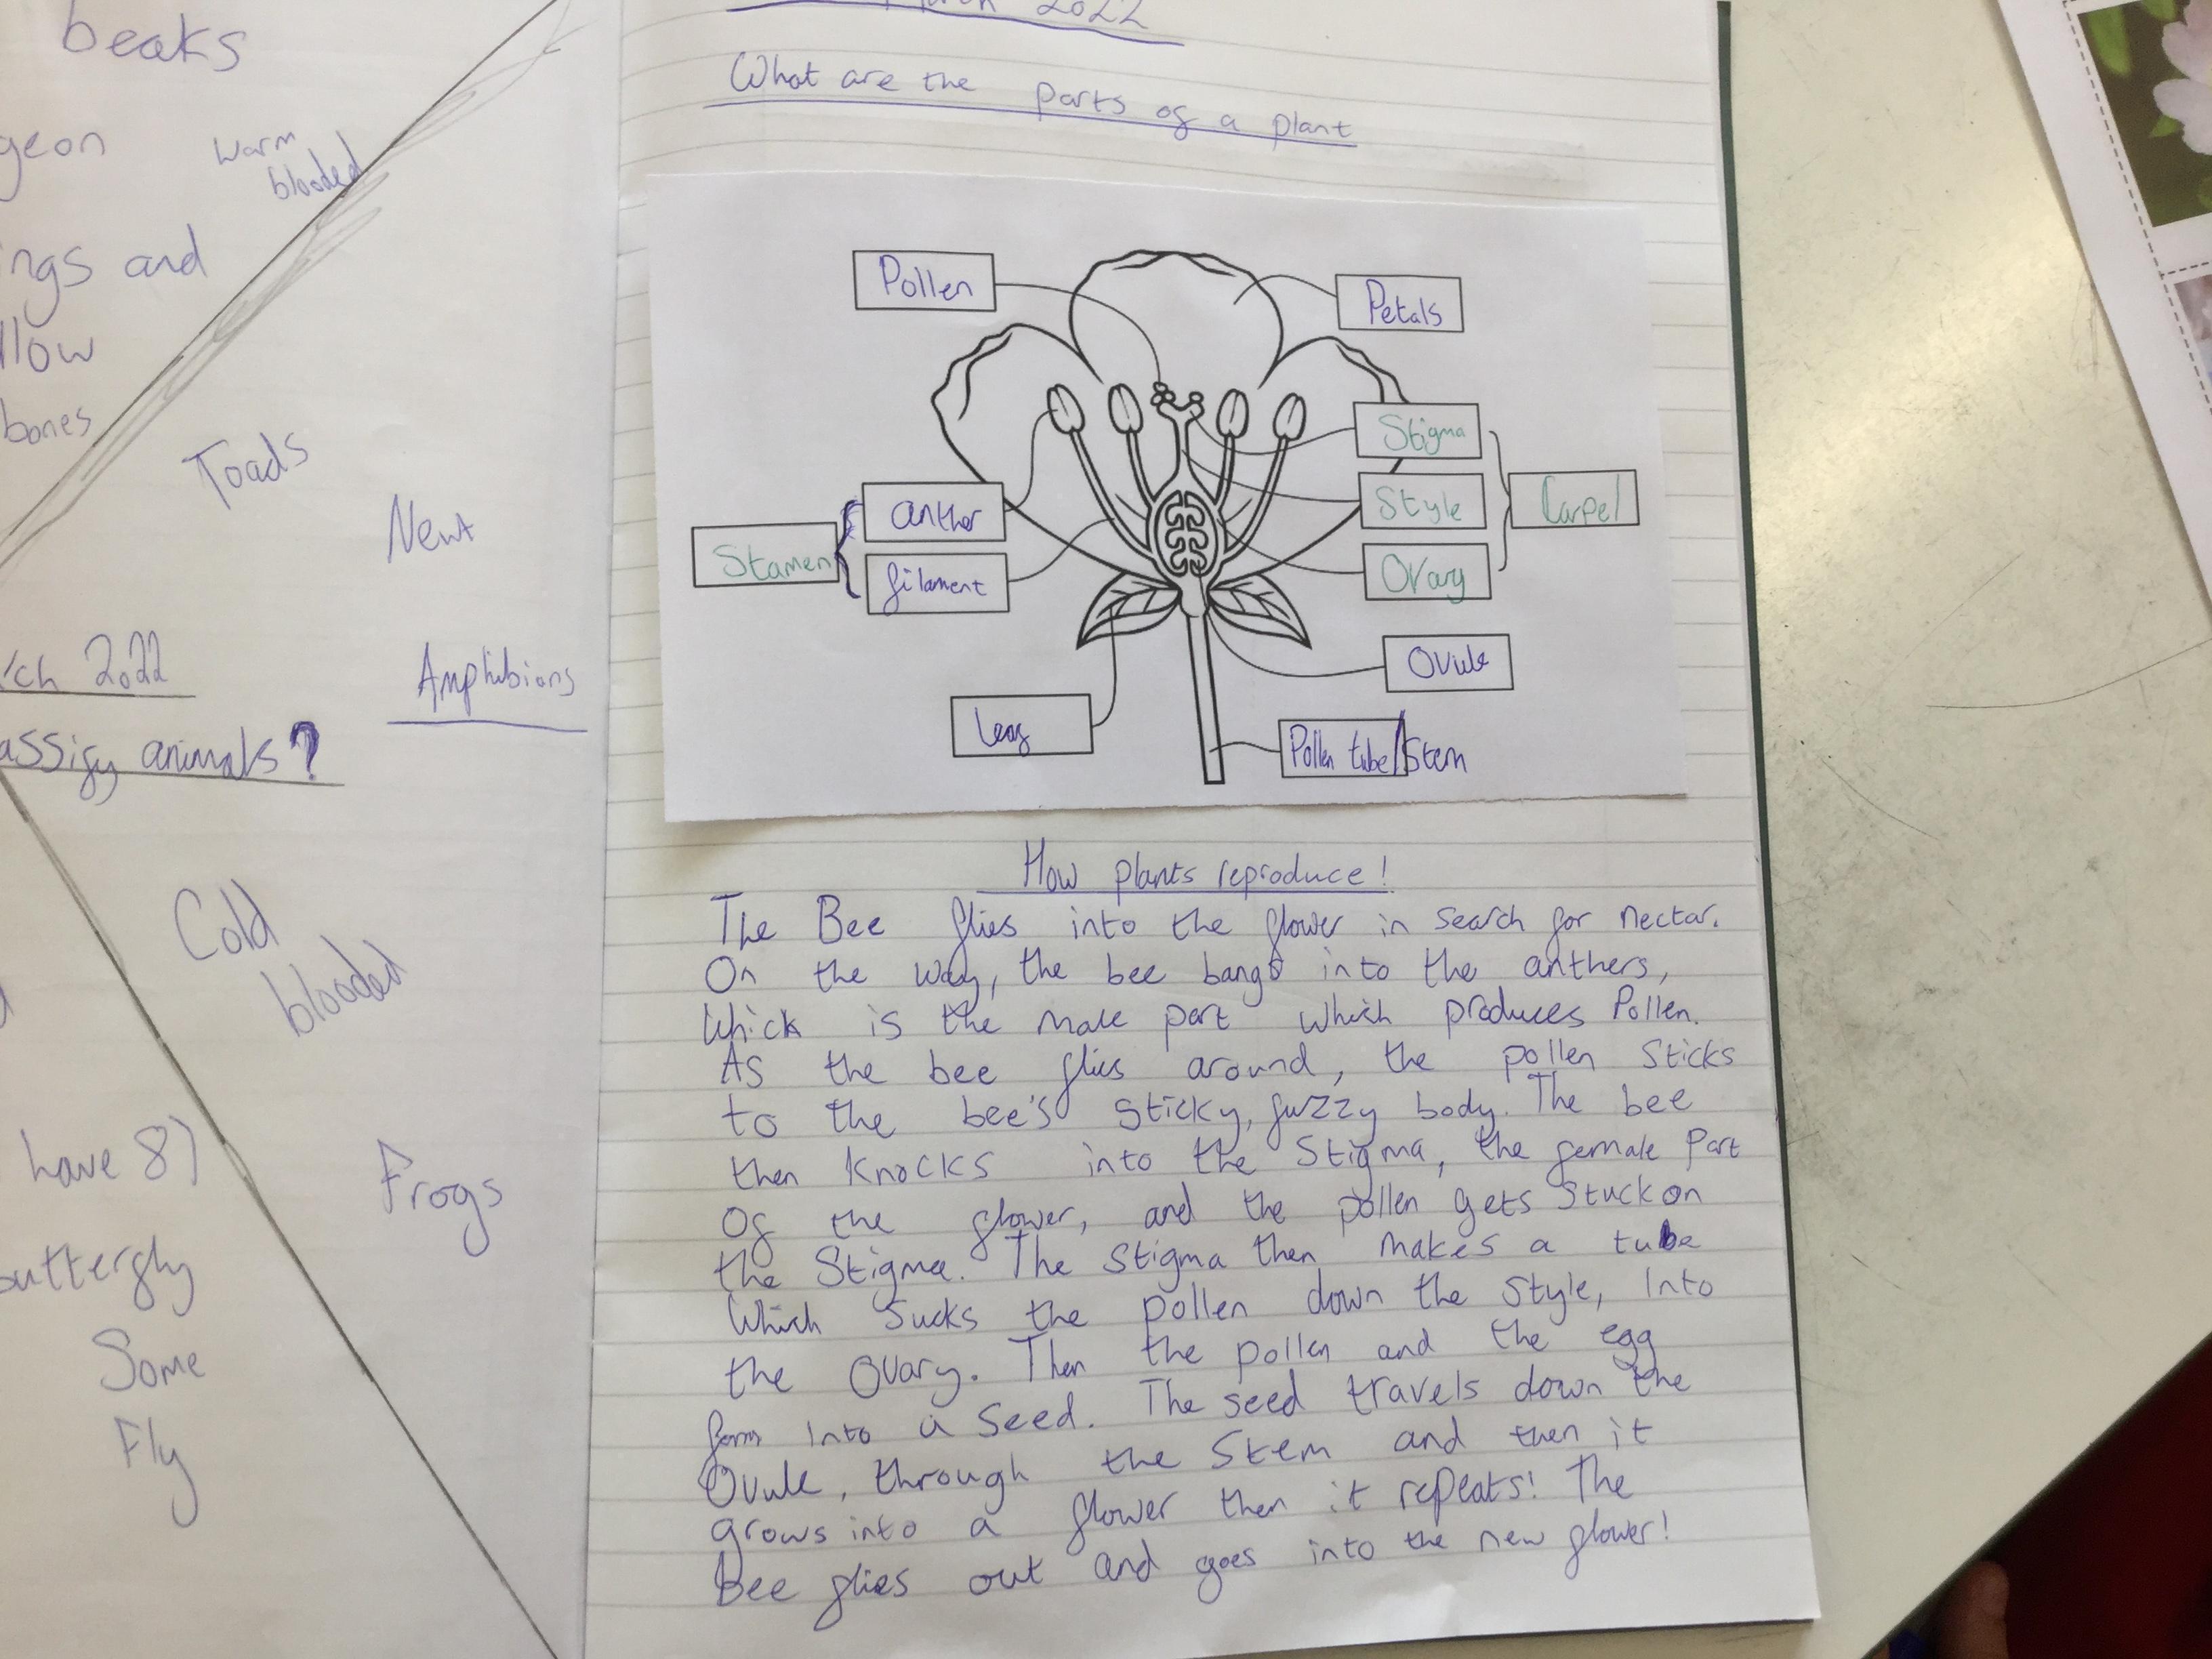 beaks
warm
blooded
and
bones
Toads
Newt
2022
Amphibians
animals?
Cold
blooded
have 8)
Frogs
Some
Fly
March 2022
What are the parts of a plant
Pollen
Petals
Stigma
Style
Ovary
Carpel
anther
filament
Stamen
Ovule
Leaf
Pollen tube/Stem
How plants reproduce!
The Bee flies into the flower in search for nectar.
On the way, the bee bangs into the anthers,
Which is the male part which produces Pollen.
As the bee flies around, the pollen sticks
to the bee's sticky, fuzzy body. The bee
then knocks into the Stigma, the female part
Of the flower, and the pollen gets stuck on
the Stigma. The stigma then makes a tube
Which sucks the pollen down the style, Into
the Ovary. Then the pollen and the egg
form into a seed. The seed travels down the
Ovule, through the Stem and then it
grows into a flower then it repeats! The
Bee flies out and goes into the new flower!